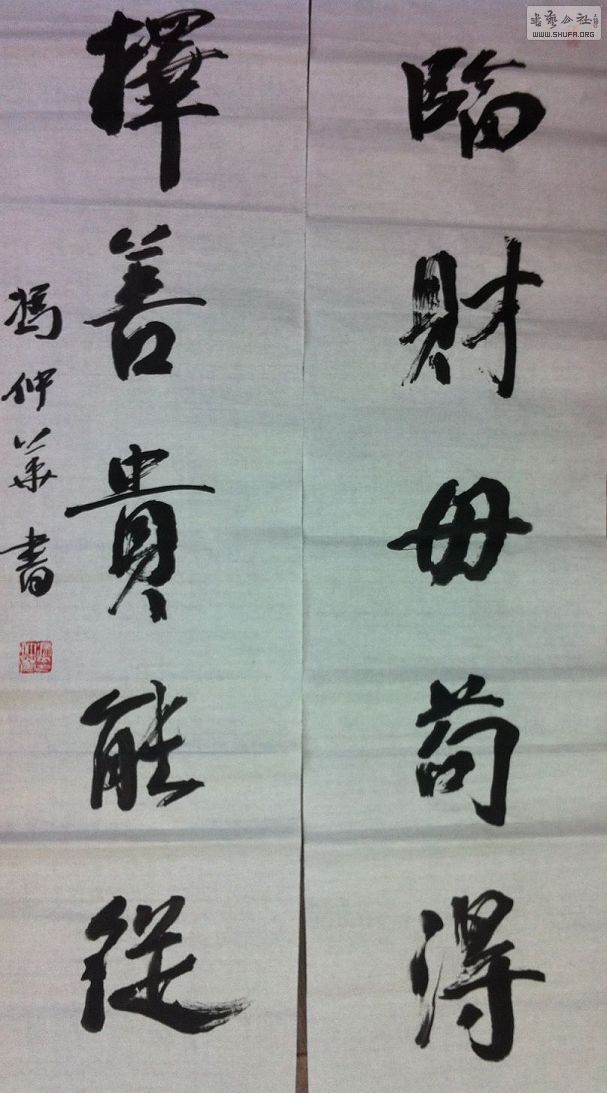 臨財毋苟得
擇善貴能從
馮仲華書
书艺公社
WWW.SHUFA.ORG